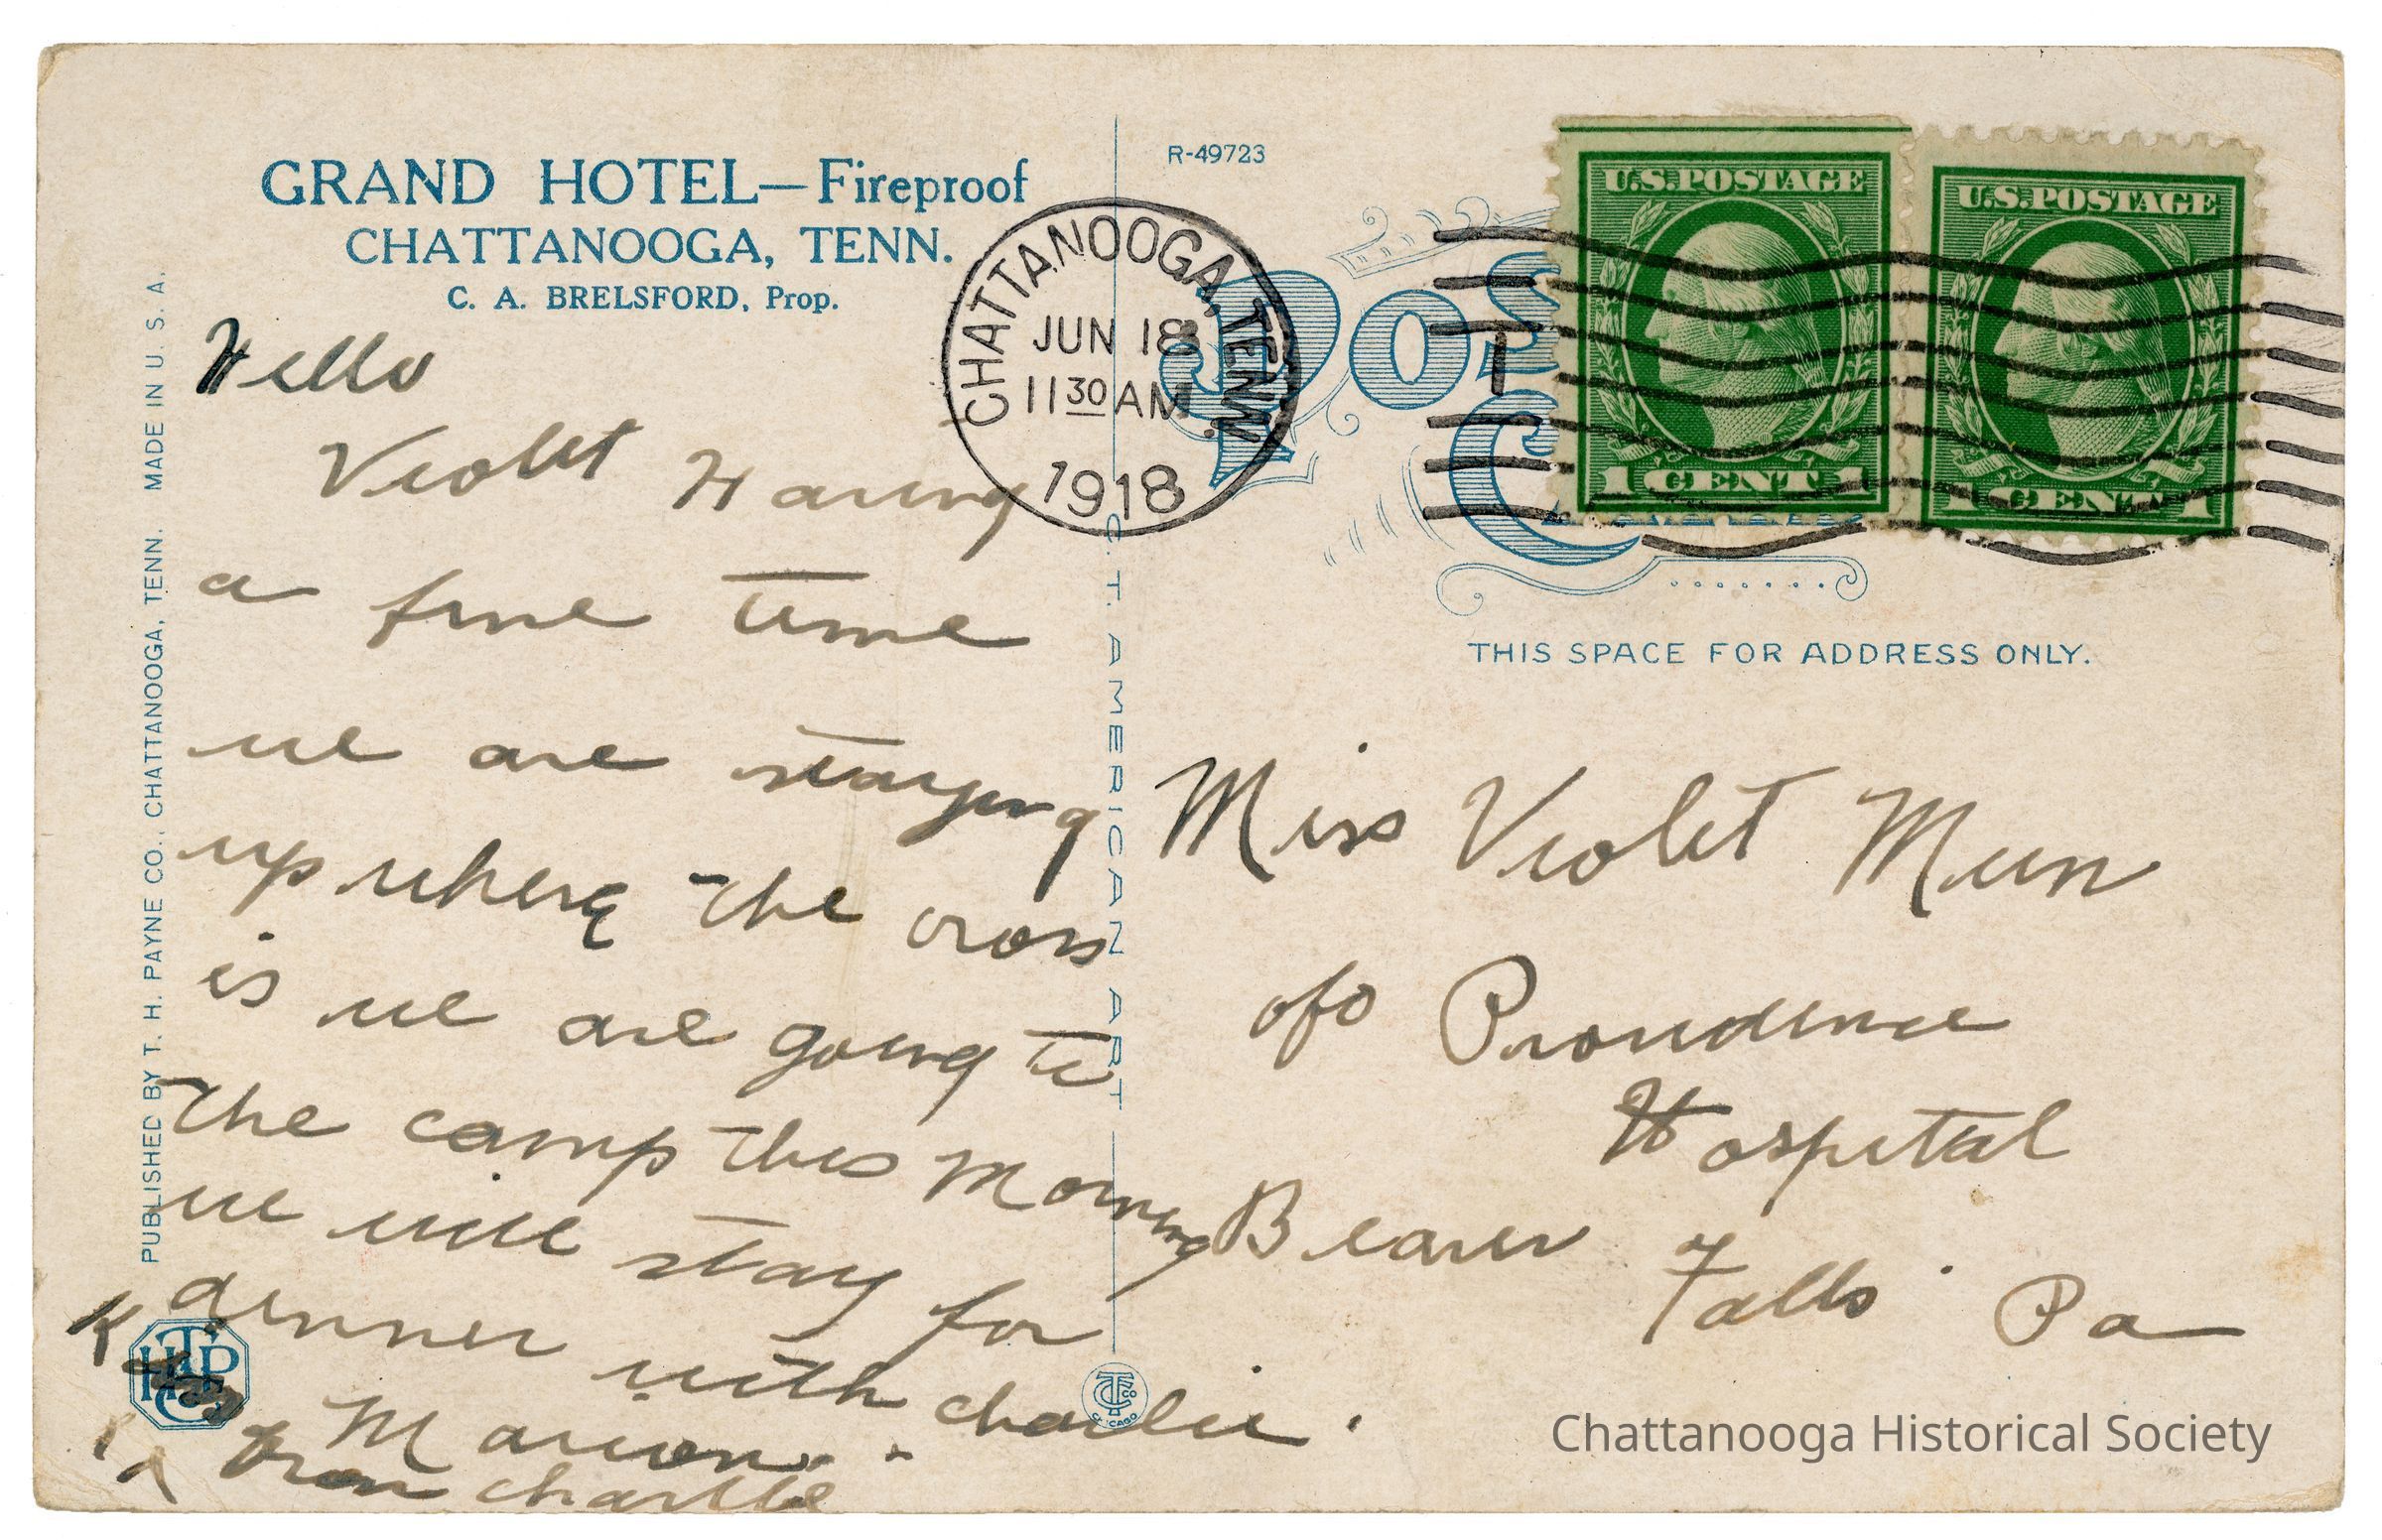 GRAND HOTEL—Fireproof
CHATTANOOGA, TENN.
C. A. BRELSFORD, Prop.
Hello
Violet Having
a fine time
we are staying
up where the cross
is we are going to
the camp this Morning
we will stay for
dinner with charlie.
Marion.
from charlie
PUBLISHED BY T. H. PAYNE CO., CHATTANOOGA, TENN. MADE IN U. S. A.
C. T. AMERICAN ART
R-49723
CHATTANOOGA, TENN.
JUN 18
11 30 AM
1918
U.S. POSTAGE
1 CENT 1
U.S. POSTAGE
1 CENT 1
THIS SPACE FOR ADDRESS ONLY.
Miss Violet
ofo Providence
Hospital
Beaver
Falls Pa
CHICAGO
Chattanooga Historical Society